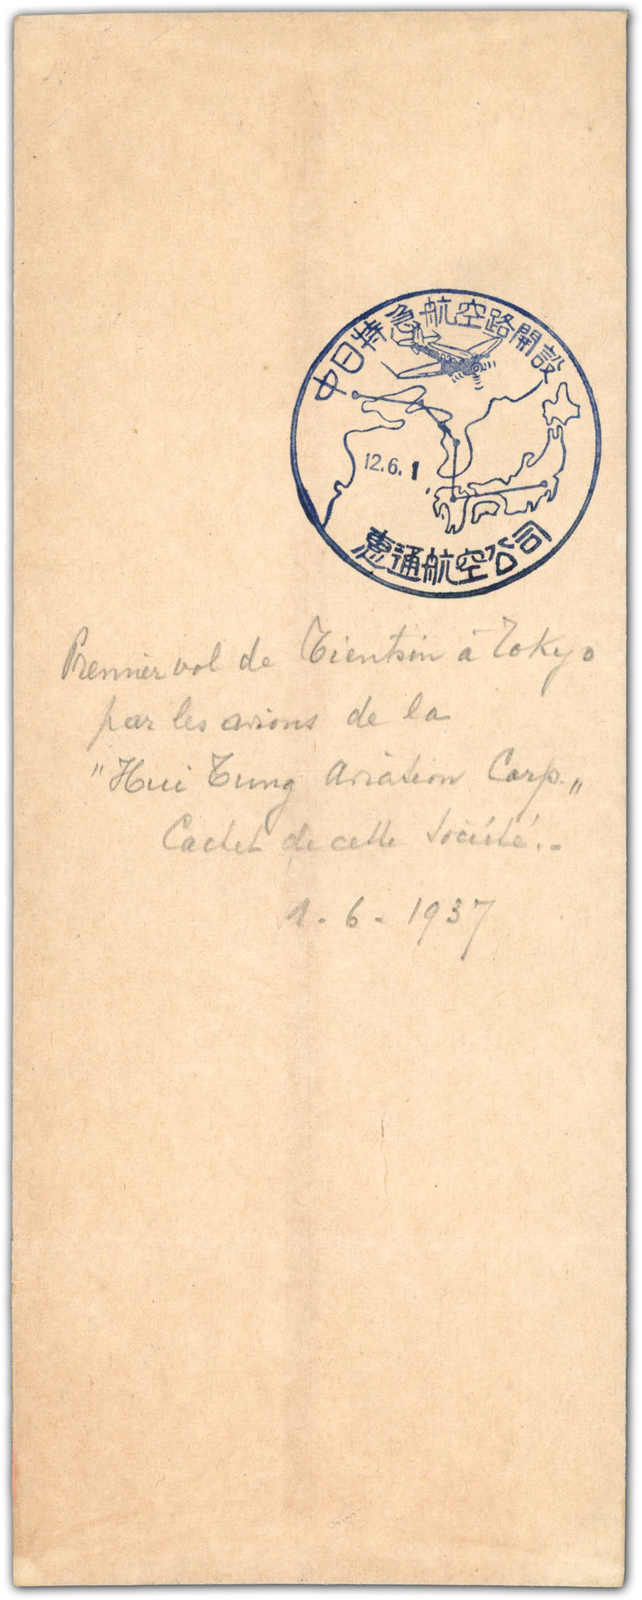 中日特急航空路開設
12.6.1
惠通航空公司
Premier vol de Tientsin à Tokyo
par les avions de la
"Hui Tung Aviation Corp."
Cachet de cette Société.-
1-6-1937